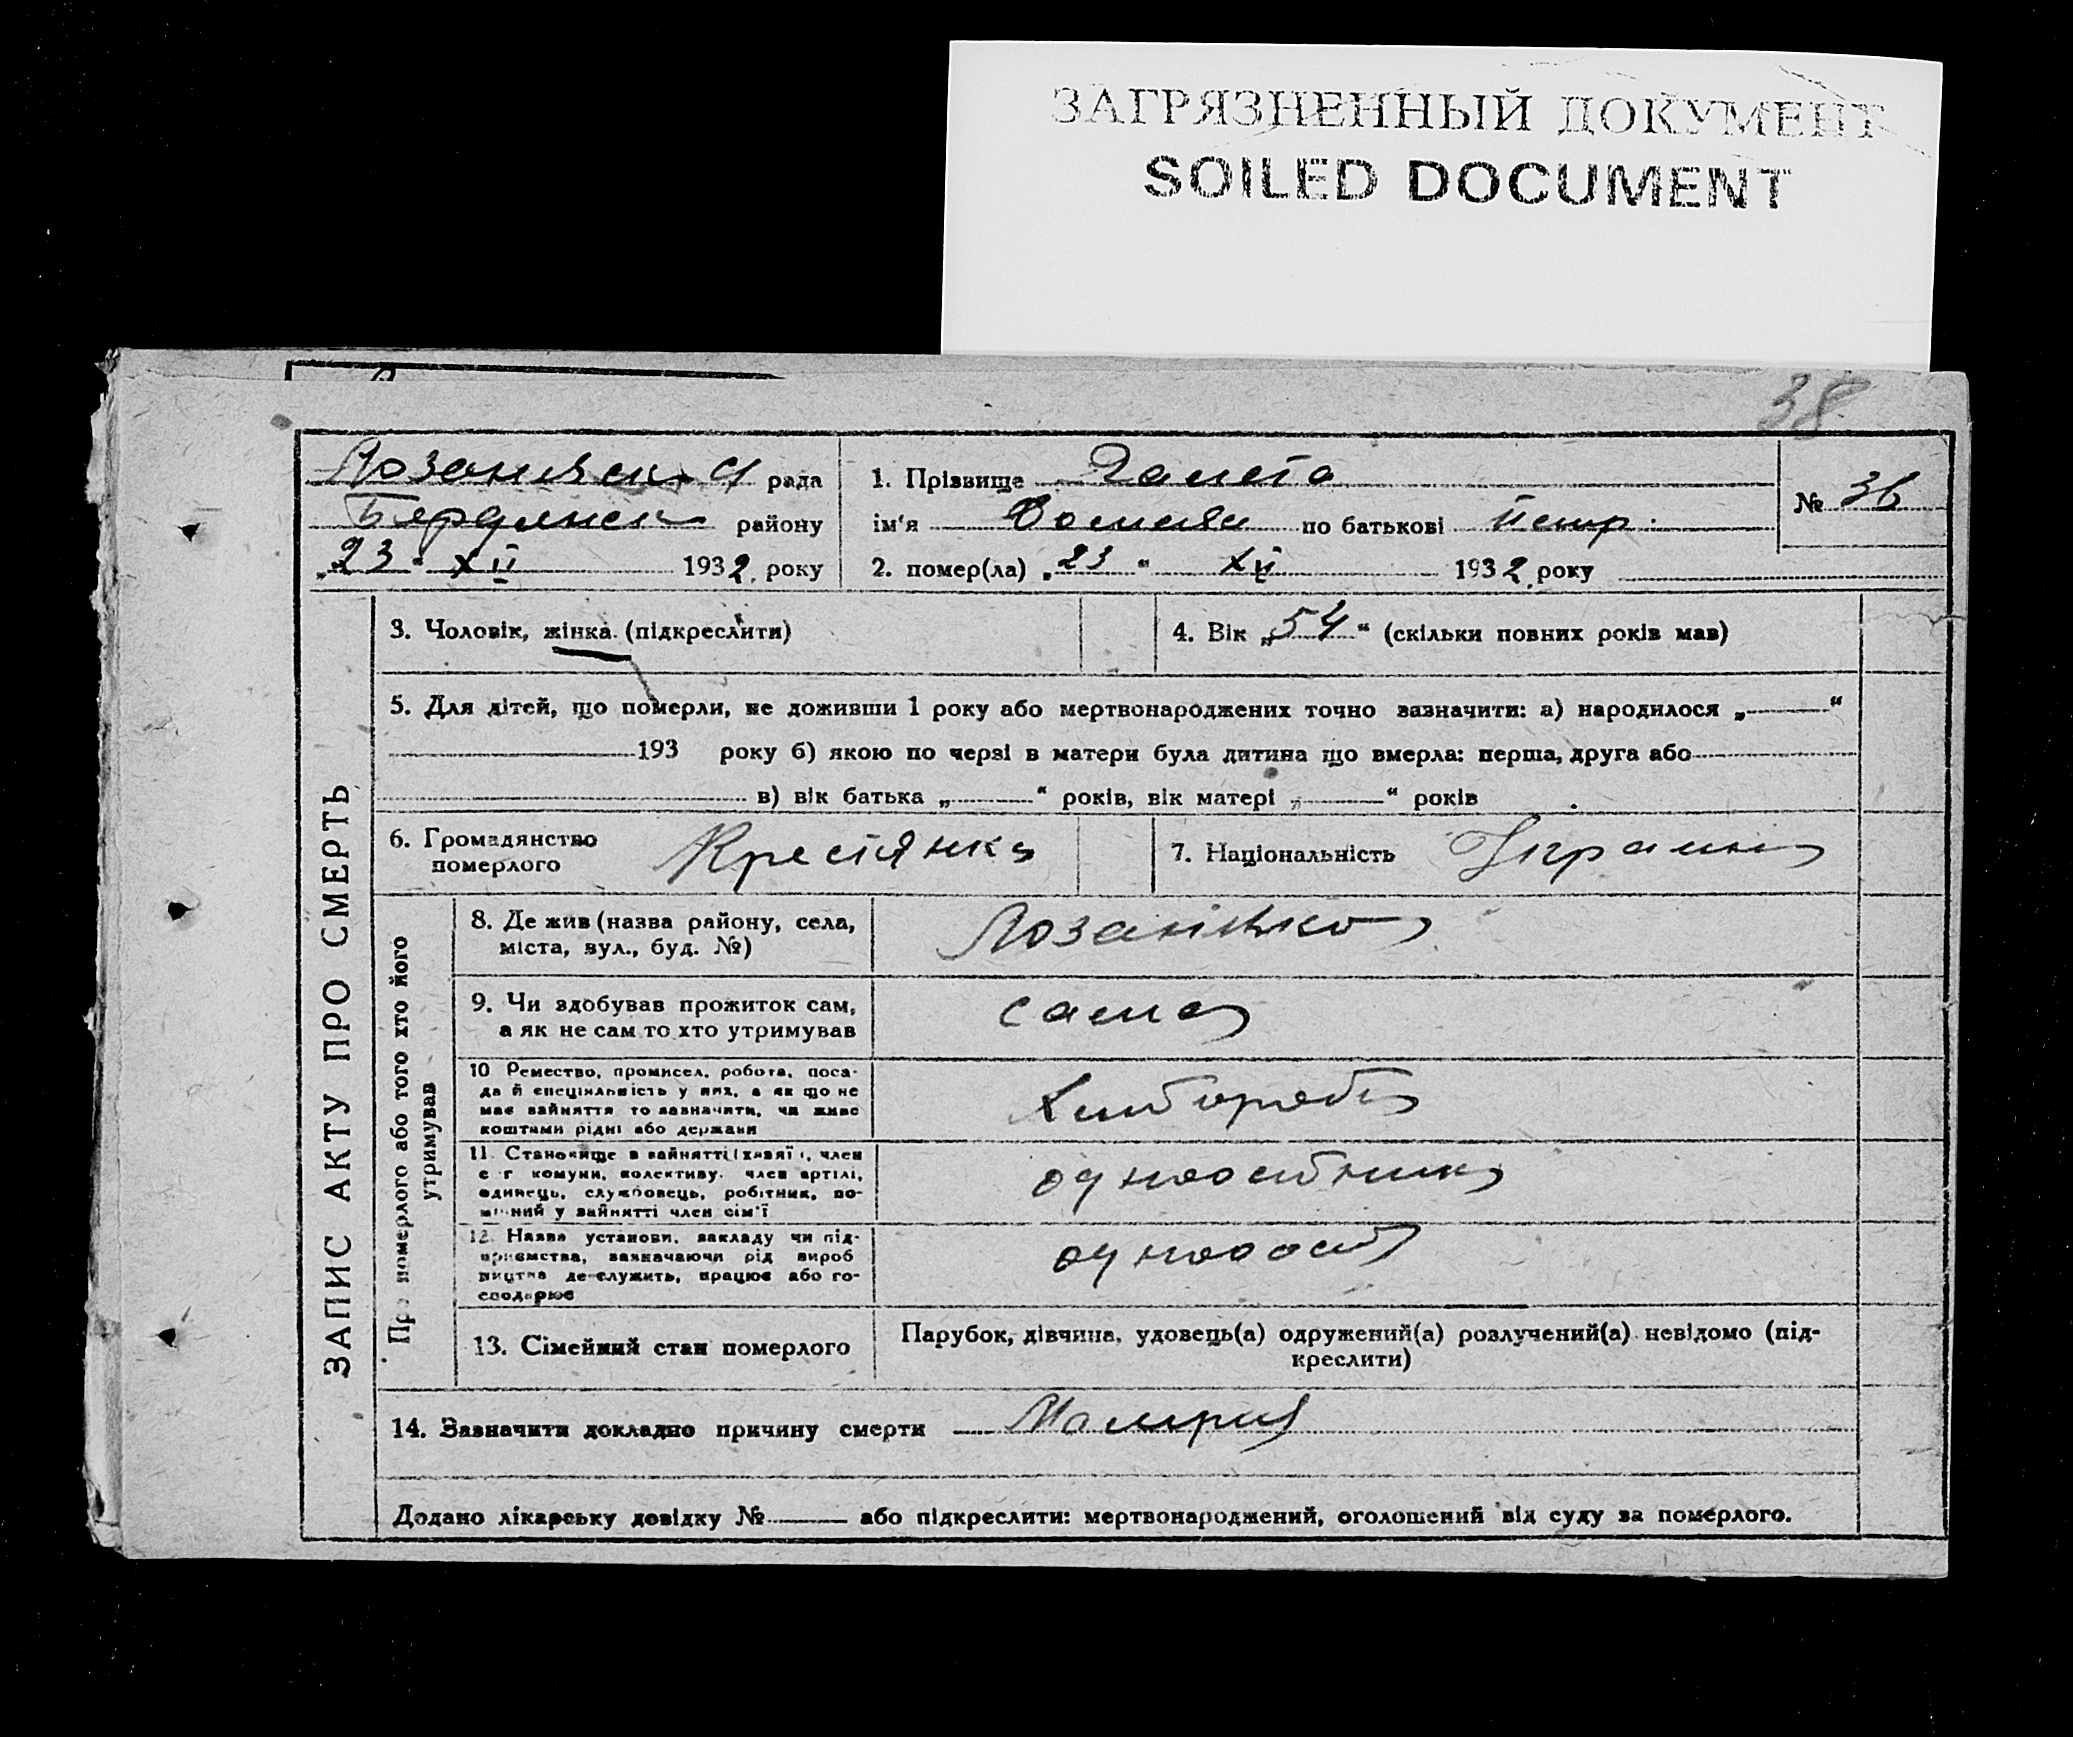 ЗАГРЯЗНЕННЫЙ ДОКУМЕНТ
SOILED DOCUMENT
38
рада
району
„23“ XII 1932. року
1. Прізвище
ім'я по батькові Петр.
2. помер(ла) „23“ XII 1932. року
№ 36
ЗАПИС АКТУ ПРО СМЕРТЬ
3. Чоловік, жінка (підкреслити)
4. Вік „54“ (скільки повних років мав)
5. Для дітей, що померли, не доживши 1 року або мертвонароджених точно зазначити: а) народилося „ “
193 року б) якою по черзі в матери була дитина що вмерла: перша, друга або
в) вік батька „ “ років, вік матері „ “ років
6. Громадянство
померлого
Крестянка
7. Національність
Про померлого або того хто його
утримував
8. Де жив (назва району, села,
міста, вул., буд. №)
9. Чи здобував прожиток сам,
а як не сам то хто утримував
сама
10 Ремество, промисел, робота, поса-
да й спеціяльність у них, а як що не
має зайняття то зазначити, чи живе
коштами рідні або держави
11. Становище в зайнятті (хазяї, член
с г комуни, колективу, член артілі,
одинець, службовець, робітник, по-
мічний у зайнятті член сім'ї
12. Назва установи, закладу чи під-
приємства, зазначаючи рід вироб
ництва де служить, працює або го-
сподарює
13. Сімейний стан померлого
Парубок, дівчина, удовець(а) одружений(а) розлучений(а) невідомо (під-
креслити)
14. Зазначити докладно причину смерти
Додано лікарську довідку № або підкреслити: мертвонароджений, оголошений від суду за померлого.